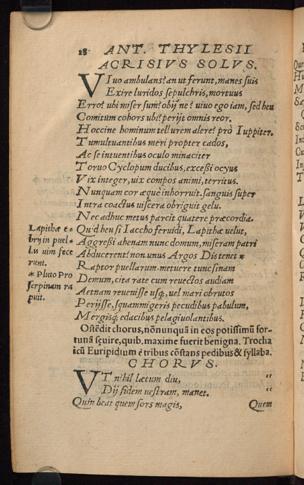 28 ANT. THYLESII
ACRISIVS SOLVS.
VIuo ambulans? an ut ferunt, manes suis
Exire luridos sepulchris, mortuus
Erro? ubi miser sum? obij ne? uiuo ego iam, sed heu
Comitum cohors ubi? perijt omnis reor.
Hoccine hominum tellurem alere? prò Iuppiter.
Tumultuantibus meri propter cados,
Ac se intuentibus oculo minaciter
Toruo Cyclopum ducibus, excessi ocyus
Vix integer, uix compos animi, territus.
Nunquam cor aeque inhorruit. sanguis super
Intra coactus uiscera obriguit gelu.
Nec adhuc metus parcit quatere præcordia.
Quid heu si Iaccho feruidi, Lapithæ uelut,
Aggreßi ahenam nunc domum, miseram patri
Abducerent? non unus Argos Distenet *
Raptor puellarum. metuere tunc sinam
Demum, cita rate cum reuectos audiam
Aetnam reuenisse usq;, uel mari obrutos
Perijsse, squammigeris pecudibus pabulum,
Mergisq; edacibus pelagiuolantibus.
Lapithæ e
bry in puel
las uim fece
runt.
* Pluto Pro
serpinam ra
puit.
Ostēdit chorus, nōnunquā in eos potissimū for-
tunā sæuire, quib. maxime fuerit benigna. Trocha
icū Euripidium è tribus cōstans pedibus & syllaba.
CHORVS.
VT nihil lætum diu,
Dij fidem uestram, manet.
Quin beat quem sors magis,
Quem